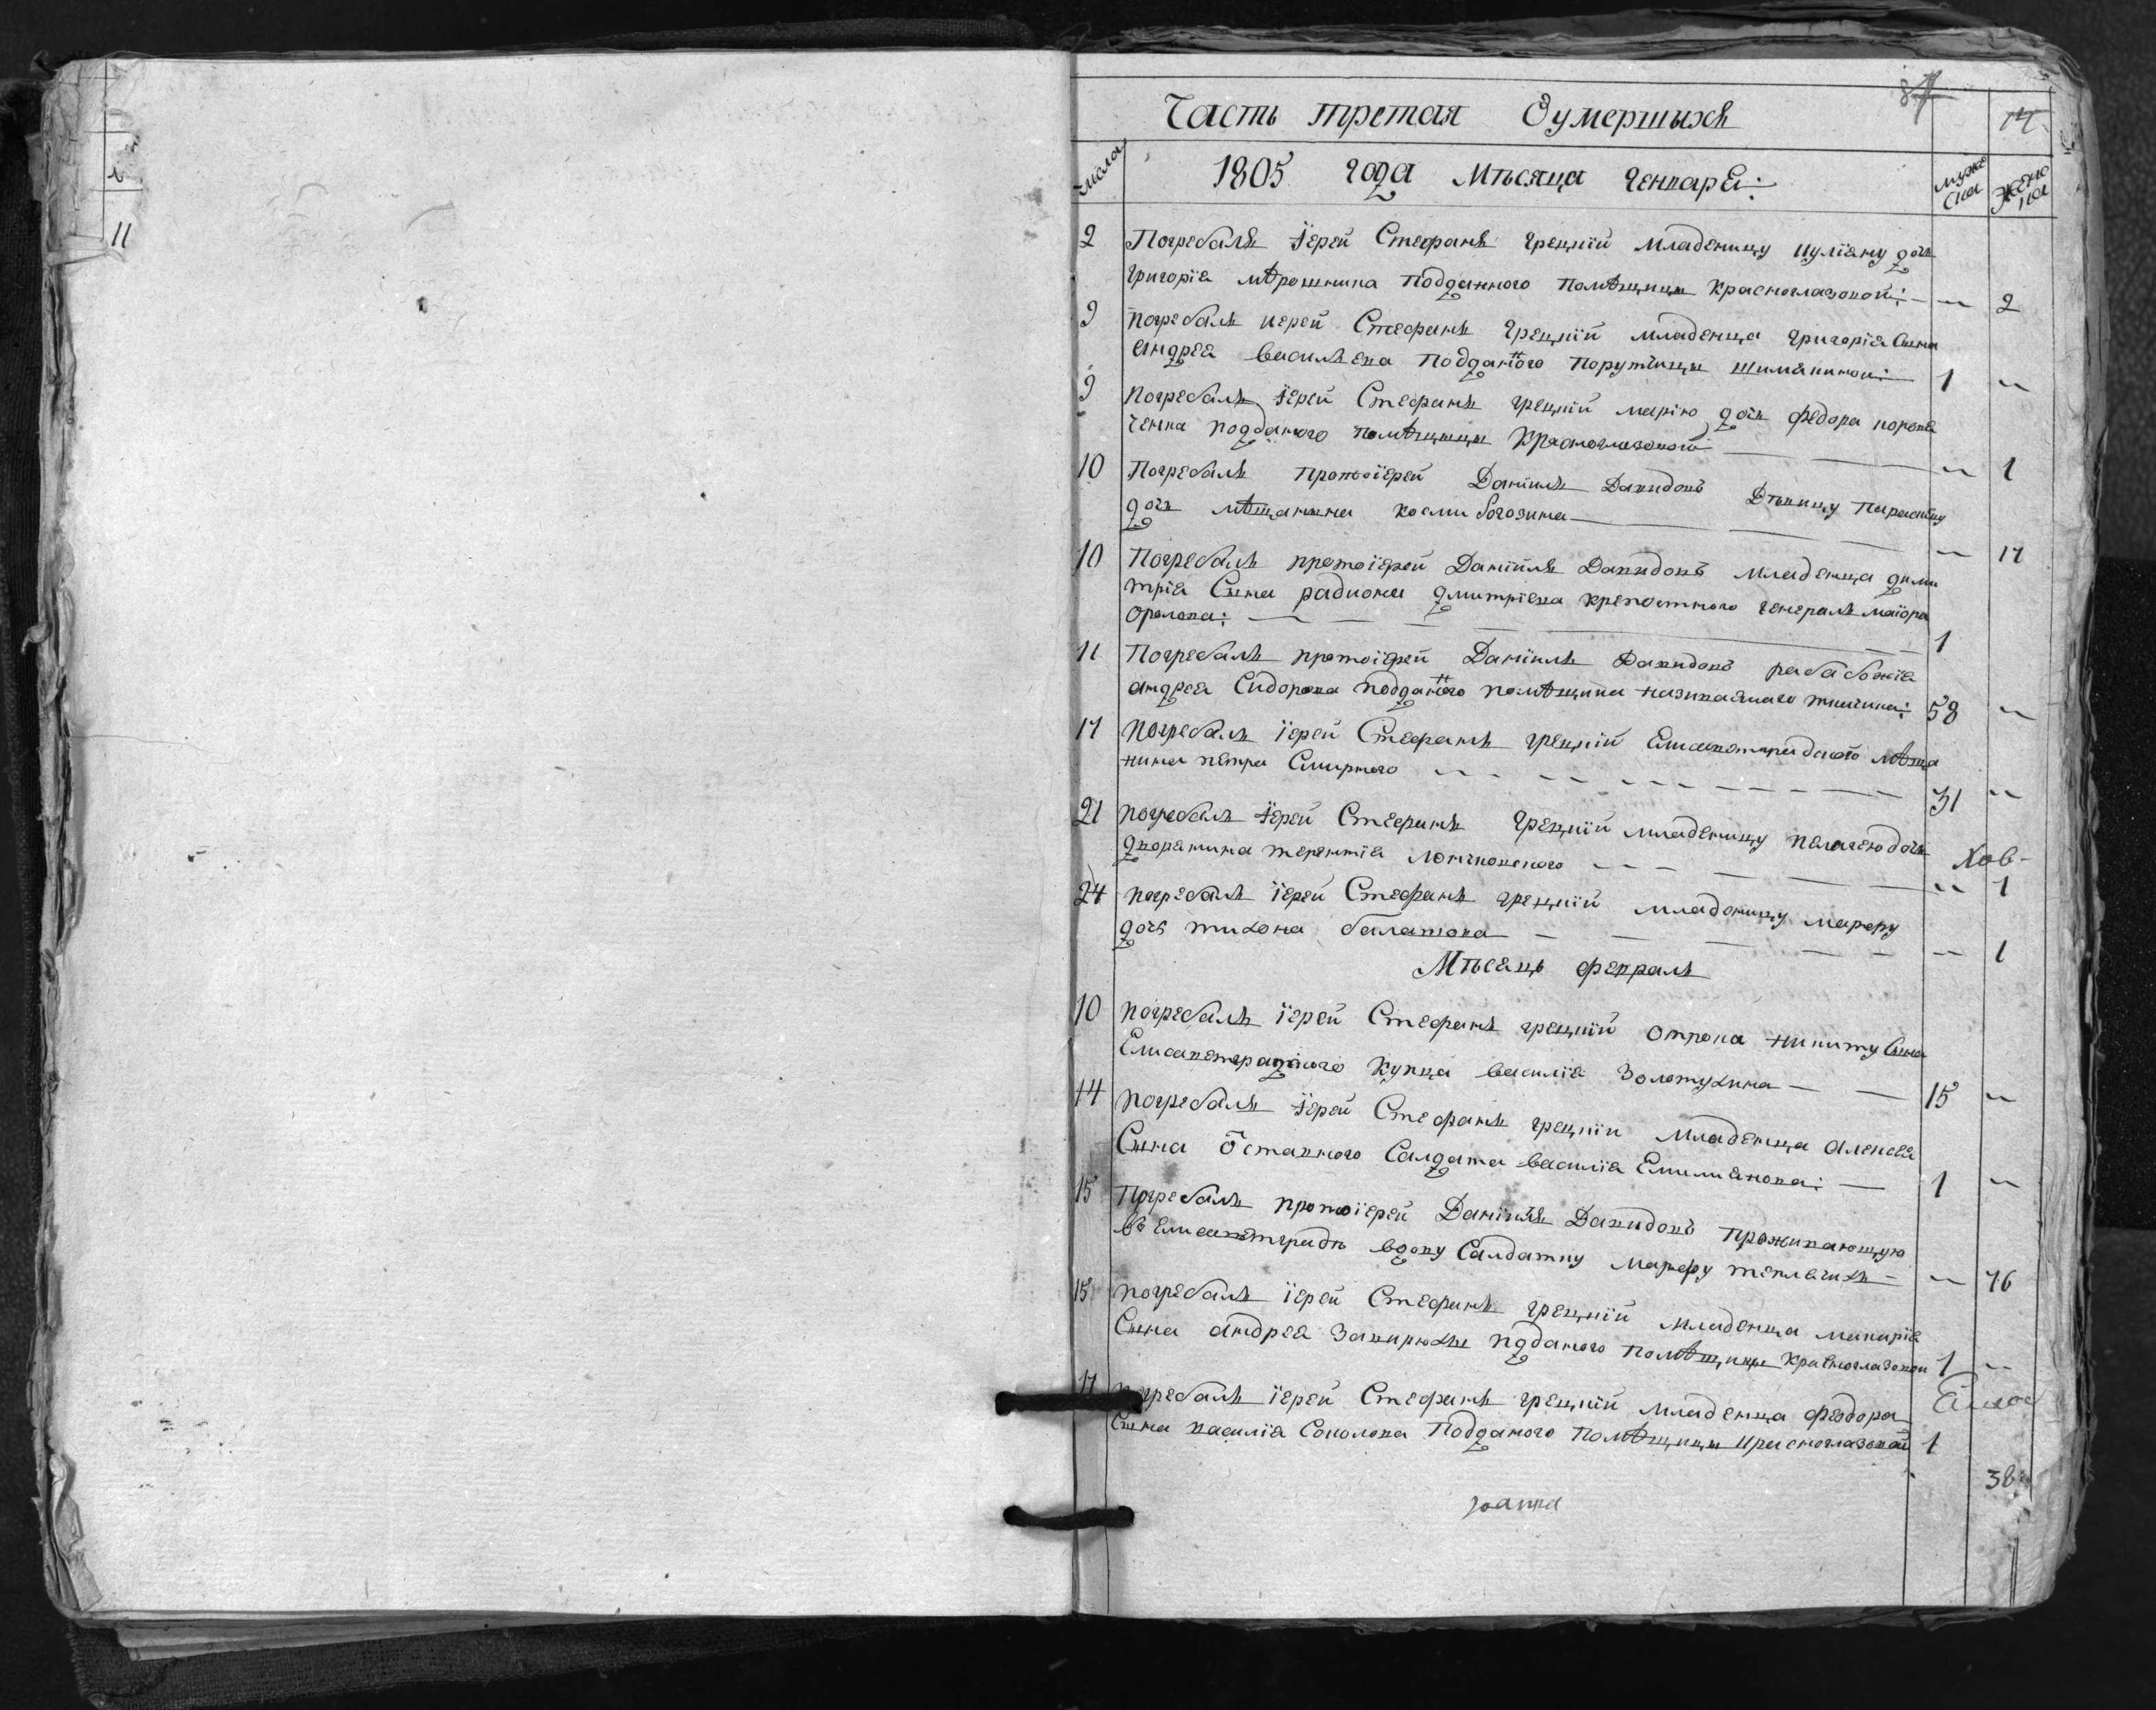 11
87
14
Часть третая Оумершихъ
числа
1805 года Мѣсяца Генваря:
мужеска
женска
2 Погребалъ Іерей Стефанъ Грецкій младеницу Иуліяну дочь
Григорія Мѣрошника подданного помѣщицы Красноглазовой: — 2
9 Погребалъ иерей Стефанъ Грецкій младенца Григорія сына
Андрея Васильева подданного порутчицы 1
9 Погребалъ Іерей Стефанъ Грецкій Марію дочь Федора
ченка подданого помѣщицы Красноглазовой — 1
10 Погребалъ протоіерей Даніилъ Давидовъ Дѣвицу Параскеву
дочь мѣщанина Косми Рогозина — 17
10 Погребалъ протоіерей Даніилъ Давидовъ младенца Дими
трія Сына Радиона Дмитріева крепостного генералъ маіора
Орлова: — 1
11 Погребалъ протоіерей Даніилъ Давидовъ раба божія
Андрея Сидорова подданного помѣщика 58
17 Погребалъ Іерей Стефанъ Грецкій Елисаветградского мѣща
нина Петра Смирного 31
21 погребалъ Іерей Стефанъ Грецкій младеницу Пелагею дочь
дворянина Терентія 1
24 погребалъ Іерей Стефанъ Грецкій младеницу Марфу
дочь Тихона Балатова — 1
Мѣсяцъ февраль
10 погребалъ Іерей Стефанъ Грецкій отрока Никиту Сына
Елисаветградского купца Василія Золотухина — 15
14 погребалъ Іерей Стефанъ Грецкій младенца Алексея
Сына отставного Салдата Василія Емельянова: — 1
15 Погребалъ протоіерей Даніилъ Давидовъ проживающую
въ Елисаветградѣ вдову Салдатку Марфу — 76
15 погребалъ Іерей Стефанъ Грецкій младенца Макарія
Сына Андрея подданого помѣщицы Красноглазовой 1
17 погребалъ Іерей Стефанъ Грецкій младенца Феодора
Сына Василія Соколова подданого помѣщицы Красноглазовой 1